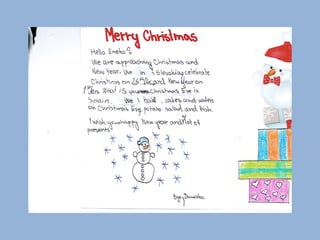 Merry Christmas
Hello Eneko!
We are approaching Christmas and
New Year. We in Slovakia celebrate
Christmas on 25th Dec and New Year on
1st Jan. What is your Christmas Eve in
Spain. We bake cakes and
on Christmas Eve potato salad and fish.
I wish you happy New Year and lot of
presents!
By